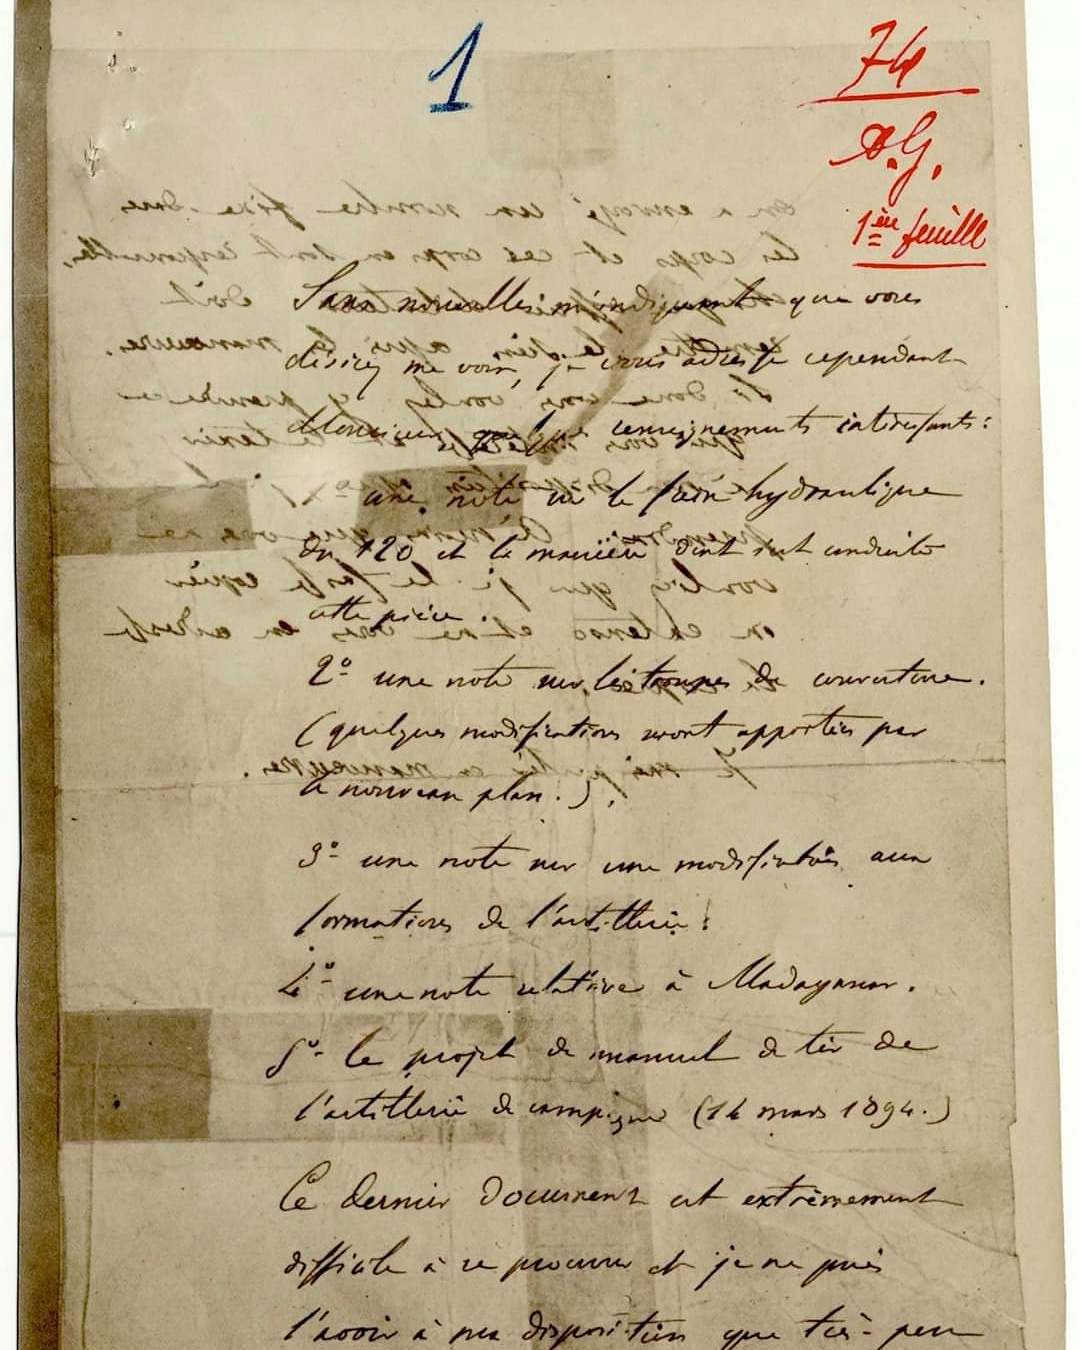 1
74
A.G.
1ère feuille
Sans nouvelles m'indiquant que vous
désirez me voir, je vous adresse cependant
Monsieur quelques renseignements intéressants :
une note sur le frein hydraulique
du 120 et la manière dont s'est conduite
cette pièce.
2º une note sur les troupes de couverture.
(quelques modifications seront apportées par
le nouveau plan.).
3º une note sur une modification aux
formations de l'artillerie :
4º une note relative à Madagascar.
5º le projet de manuel de tir de
l'artillerie de campagne (14 mars 1894.)
Ce dernier document est extrêmement
difficile à se procurer et je ne puis
l'avoir à ma disposition que très peu